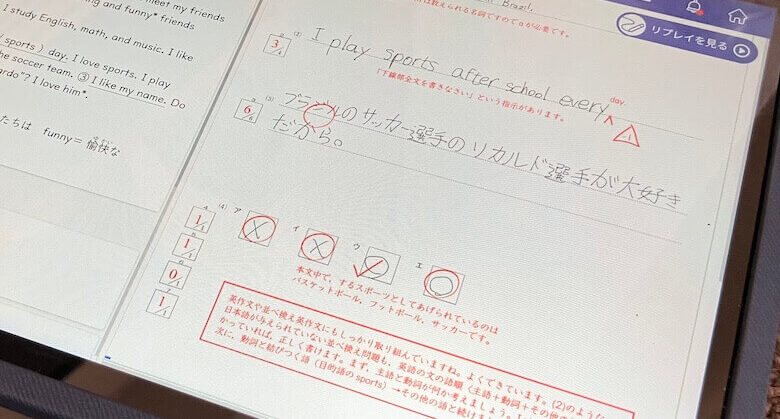 meet my friends
ing and funny* friends
I study English, math, and music. I like
sports ) day. I love sports. I play
the soccer team. ③ I like my name. Do
ardo"? I love him*.
たちは funny= 愉快な
ゆかい
Brazil.
は数えられる名詞ですてaが必要です。
リプレイを見る
3/4
(2) I play sports after school every
day.
「下線部全文を書きなさい」という指示があります。
-1
6/6
(3) ブラジルのサッカー選手のリカルド選手が大好き
だから。
(4) ア イ ウ エ
1/1
1/1
0/1
1
本文中で、するスポーツとしてあげられているのは
バスケットボール、フットボール、サッカーです。
英作文や並べ換え英作文にもしっかり取り組んでいますね。よくできています。(2)のような
日本語が与えられていない並べ換え問題も、英語の文の語順(主語+動詞+その他の
かっていれば、正しく書けます。まず、主語と動詞が何か考えましょう。
次に、動詞と結びつく語(目的語の sports)→その他の語と続けま